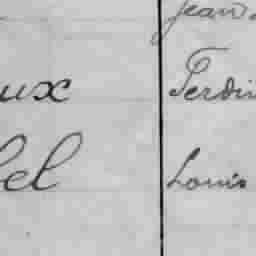 Jean
ux Ferdin
el Louis